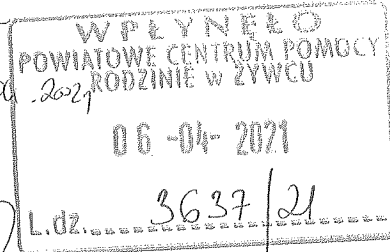 WPŁYNĘŁO
POWIATOWE CENTRUM POMOCY
RODZINIE w ŻYWCU
.2021
06 -04- 2021
L.dz. 3637/21